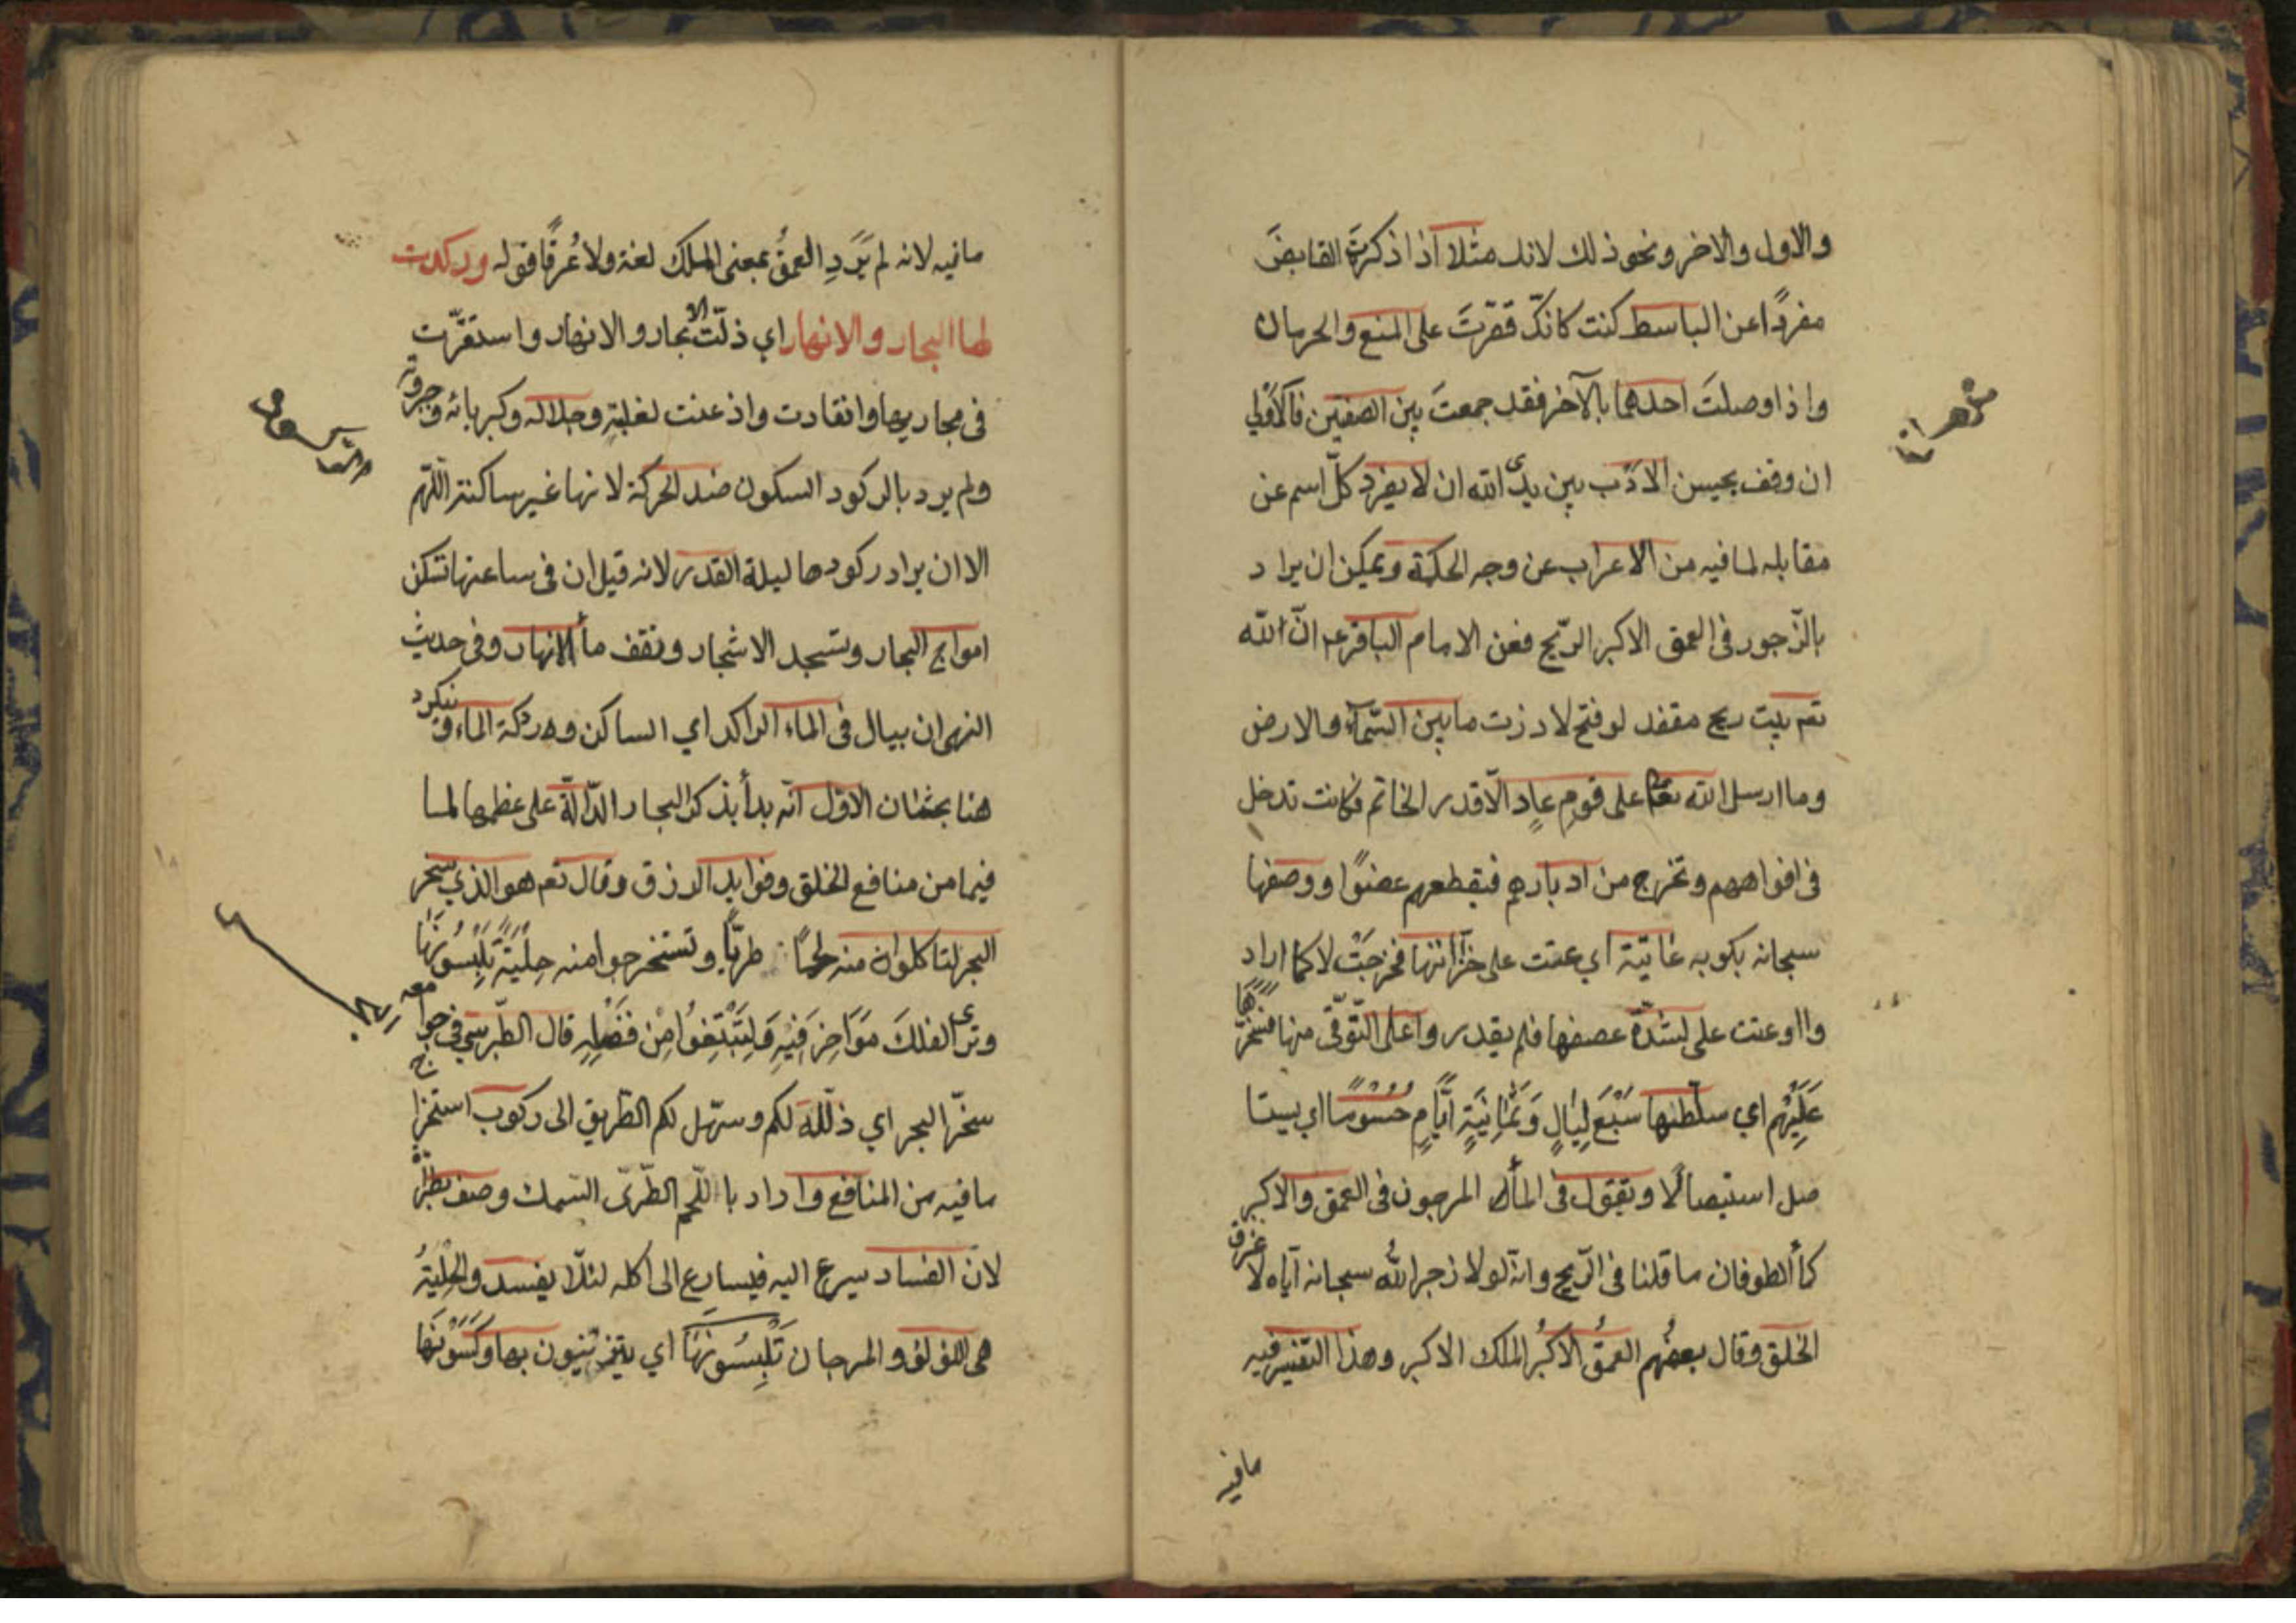 والاول والاخر ونحو ذلك لانك مثلا اذا ذكرت القابضَ
مفردًا عن الباسط كنت كانكّ قصّرتَ على المنع والحرمان
واذا وصلتَ احدهما بالآخر فقد جمعتَ بين الصفتين فالاَولى
ان وقف بحسن الادَب بين يدى الله ان لا يفرد كلّ اسم عن
مقابله لما فيه من الاعراب عن وجه الحكمة ويمكن ان يراد
بالزّجور فى العمق الاكبر الرّيح فعن الامام الباقر ع انّ الله
تعم بيت ريح مقفد لو فتح لاذرت ما بين السّماء والارض
وما ارسل الله تعم على قومِ عادٍ الّا قدر الخاتم فكانت تدخل
فى افواههم وتخرج من ادبارهم فيقطعهم عضوًا ووصفها
سبحانه بكوبه عاتيَة اي عتت على خزّانها فخرجَتْ لا كما اراد
وااوعتت على لشدّة عصفها فلم يقدروا على التّوقّى منها سَخَّرَهَا
عَلَيْهِم اي سلّطها سَبْعَ لَيٰالٍ وَثَمٰانِيَةِ ايَّامٍ حُسُومًا اي يستا
صل استيصالًا ونقول فى المأ المزجور فى العمق والاكبر
كأ الطوفان ما قلنا فى الرّيح وانّه لولا زجر اللهُ سبحانه ايّاه لا غرق
الخلق وقال بعضُهم العمقُ الاكبُر الملك الاكبر وهذا التفسير فيه
مافيه
مافيه لانه لم يَرِدِ العمقُ بمعنى الملك لغة ولا عُرفًا قوله وركدت
لها البحار والانهار اي ذلّت الابحار والانهار واستقرّت
فى مجاريها وانقادت واذعنت لغلبته وجلاله وكبريائه وجبروته
ولم يرد بالركود السكون ضد الحركة لانها غير ساكنة اللّهم
الا ان يراد ركودها ليلة القدر لانه قيل ان فى ساعتها تسكن
امواج البحار وتسجد الاشجار وتقف مأ الانهار وفى حديث
النهى ان يبال فى الماء الراكد اي الساكن
هنا بحثان الاوّل انّه بدأ بذكر البحار الدّالّة على عظمها لما
فيها من منافع الخلق وفوايد الرزق وقال تعم هو الذي سخر
البحر لتاكلوا منه لحمًا طريًّا وتستخرجوا منه حِلْيَةً تَلْبَسُونَهٰا
وترى الفلكَ مَوَاخِرَ فِيْهِ وَلِتَبْتَغُوا مِنْ فَضْلِهِ قال الطّبرسي فى جوامعه
سخّر البحر اي ذلّله لكم وسهّل لكم الطّريق الى ركوب استخراج
ما فيه من المنافع واراد با اللّحم الطّرىّ السّمك وصف بطرّ
لانّ الفساد يسرع اليه فيسارع الى اكله لئلّا يفسد والحِلْيَةُ
هى اللؤلؤ والمرجان تَلْبَسُونَهٰا اي يتزيّنون بها وكَسَوْتَهٰا